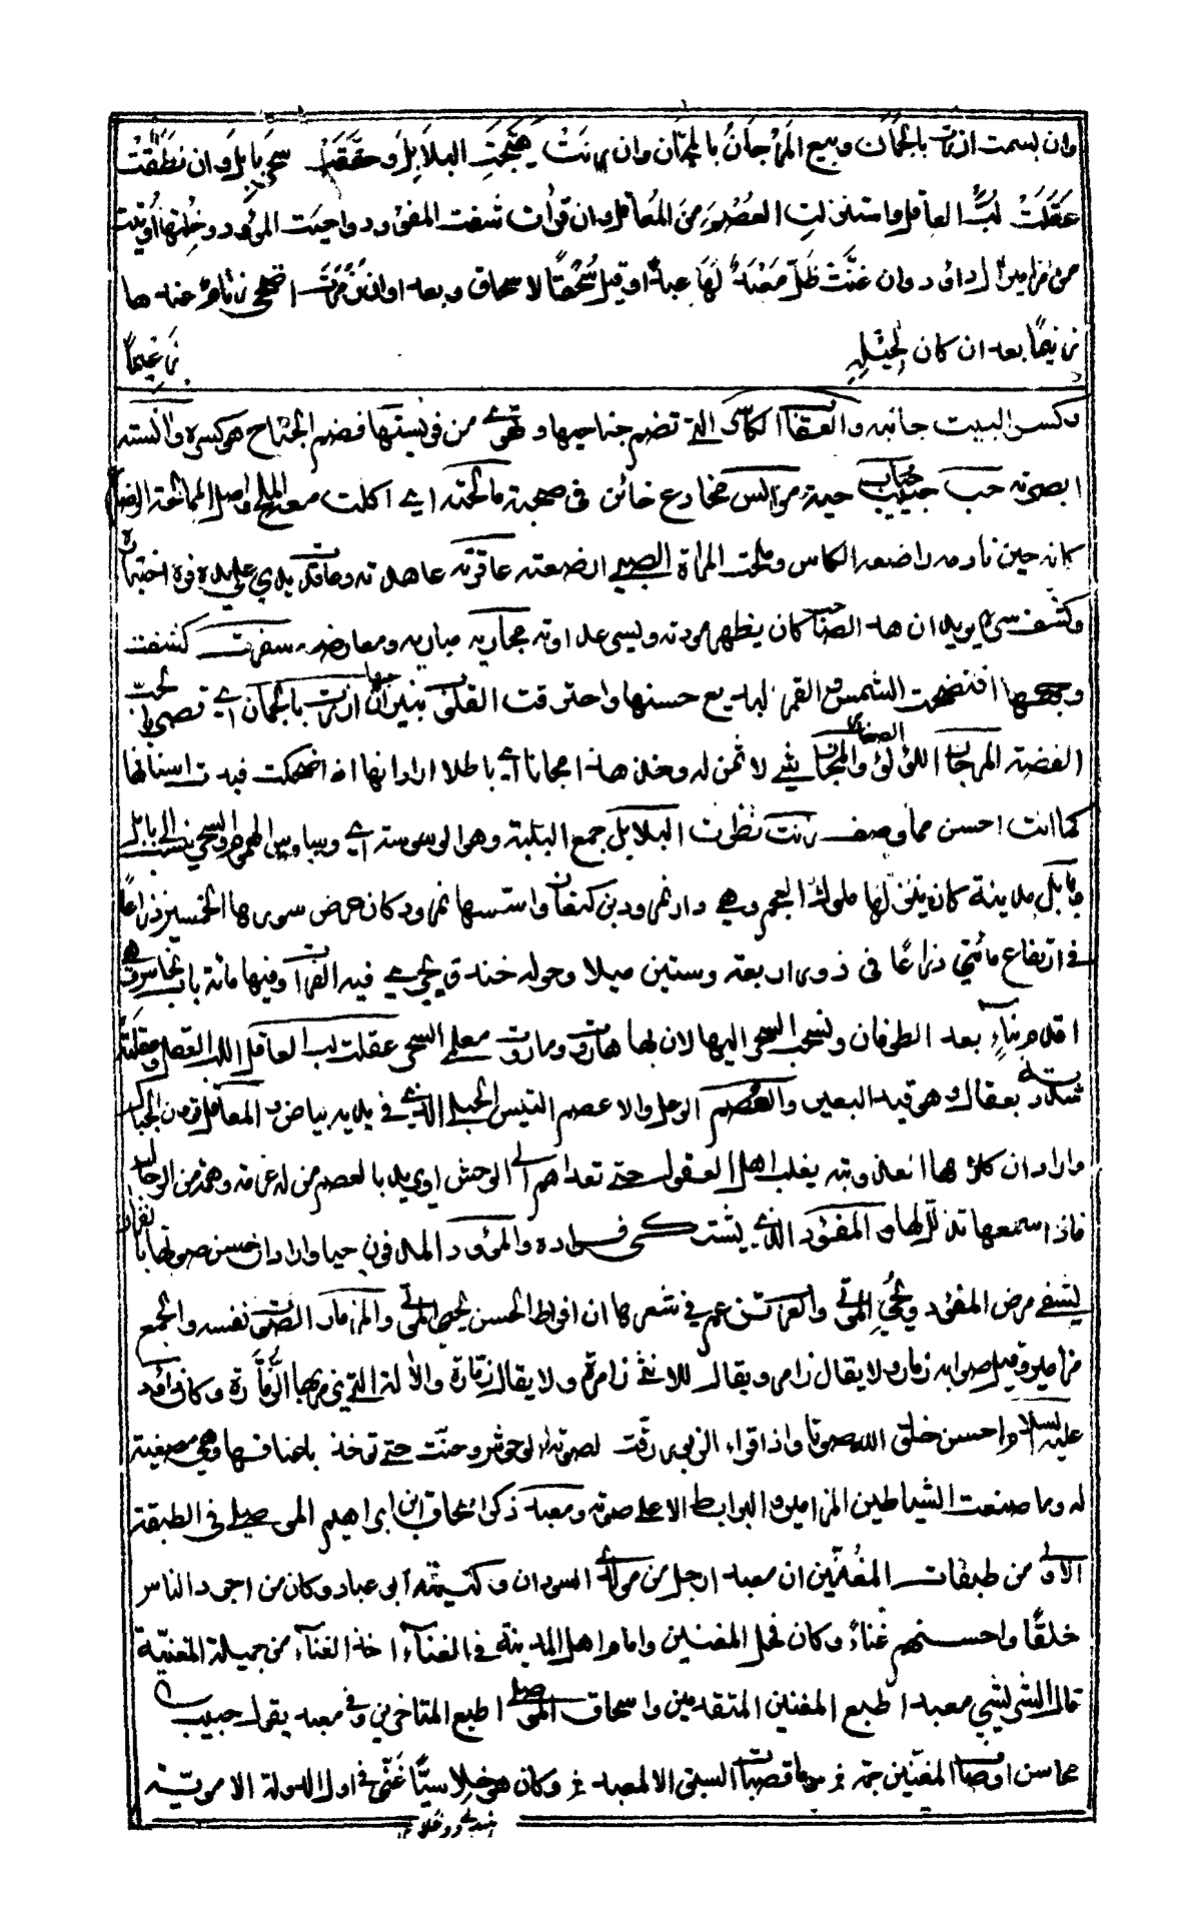 وان بسمت ازرت بالجمان وبيع المرجان بالمجان وان رنت هيجت البلابل وحققت سحر بابل وان نطقت
عقلت لب العاقل واستنزلت العصم من المعاقل وان قرات شفت المفؤد واحيت الموؤد وخلتها اوتيت
من مزامير ال داود وان غنت ظل معبد لها عبدا وقيل سحقا لاسحاق وبعدا وان زمرت اضحى زنام عندها
زنيما بعد ان كان لجيله زعيما
وكسر البيت جانبه والعقاب الكاسر التي تضم جناحيها وتهوي من فريستها فضم الجناح هو كسره وآنسته
ابصرته حب حبيب حباب حية موالس مخادع خائن في صحبة مالحته اي اكلت معه الملح واصل الممالحة الرضاع
كانه حين نادمه راضعه الكاس وملحت المراة الصبي ارضعته عاقرته عاهدته
وكشف سره يريد ان هذا الصاحب كان يظهر مودته ويسر عداوته مجاريه مباريه ومعارضه سفرت كشفت
وجهها افتضحت الشمس والقمر لبديع حسنها واحترقت القلوب بنيران حبها ازرت بالجمان اي قصرت بحب
الفضة المرجان اللؤلؤ الصغار والمجان شيء لا ثمن له وخذ هذا مجانا اي باطلا اراد انها اذا ضحكت فبدت اسنانها
كانت احسن مما وصف رنت نظرت البلابل جمع البلبلة وهو الوسوسة اي وساوس الهموم والسحر ينسب الى بابل
وبابل مدينة كان ينزلها ملوك العجم وهي دار نمرود بن كنعان واسسها نمرود كان عرض سورها الخمسين ذراعا
في ارتفاع مائتي ذراعا في ذور اربعة وستين ميلا وحوله خندق يجري فيه الفرات وفيها مائة باب نحاس وهي
اقدم بناء بعد الطوفان ونسب السحر اليها لان بها هاروت وماروت معلمي السحر عقلت لب العاقل اللب العقل وعقلته
شددته بعقال وهو قيد البعير والعصم الوعل والاعصم التيس الجبلي الذي في يديه بياض والمعاقل قرون الجبال
واراد ان كلامها لعذوبته يغلب اهل العقول حتى تعداهم الى الوحش او يريد بالعصم من له عزمة وهمة من الرجال
فاذا سمعها تذلل لها والمفؤد الذي يشتكي فواده والموؤد المدفون حيا واراد ان حسن صوتها بانفراده
يشفي مرض المفؤد ويحيي الموتى والعرب تزعم في شعرها ان افراط الحسن يحيي الموتى والمزمار الصوت نفسه والجمع
مزامير وقيل صوابه زمار ولا يقال زامر ويقال للانثى زامرة ولا يقال زمارة والآلة التي يزمر بها الزمارة وكان داود
عليه السلام احسن خلق الله صوتا واذا قراء الزبور رقت لصوته الوحوش وحنت حتى توخذ باعناقها وهي مصغية
له وما صنعت الشياطين المزامير والبرابط الا على صوته ومعبد ذكر اسحاق ابن ابراهيم الموصلي في الطبقة
الاولى من طبقات المغنين ان معبد ارجل من مولدي السودان وكنيته ابي عباد وكان من اجود الناس
خلقا واحسنهم غناء وكان فحل المغنين وامام اهل المدينة في الغناء اخذ الغناء من جميلة المغنية
قال الشريشي معبد اطبع المغنين المتقدمين واسحاق الموصلي اطبع المتاخرين وفي معبد يقول حبيب
محاسن اوصاف المغنين جمة وما قصبات السبق الا لمعبد وكان هو خلاسيا غنى في اول الدولة الاموية